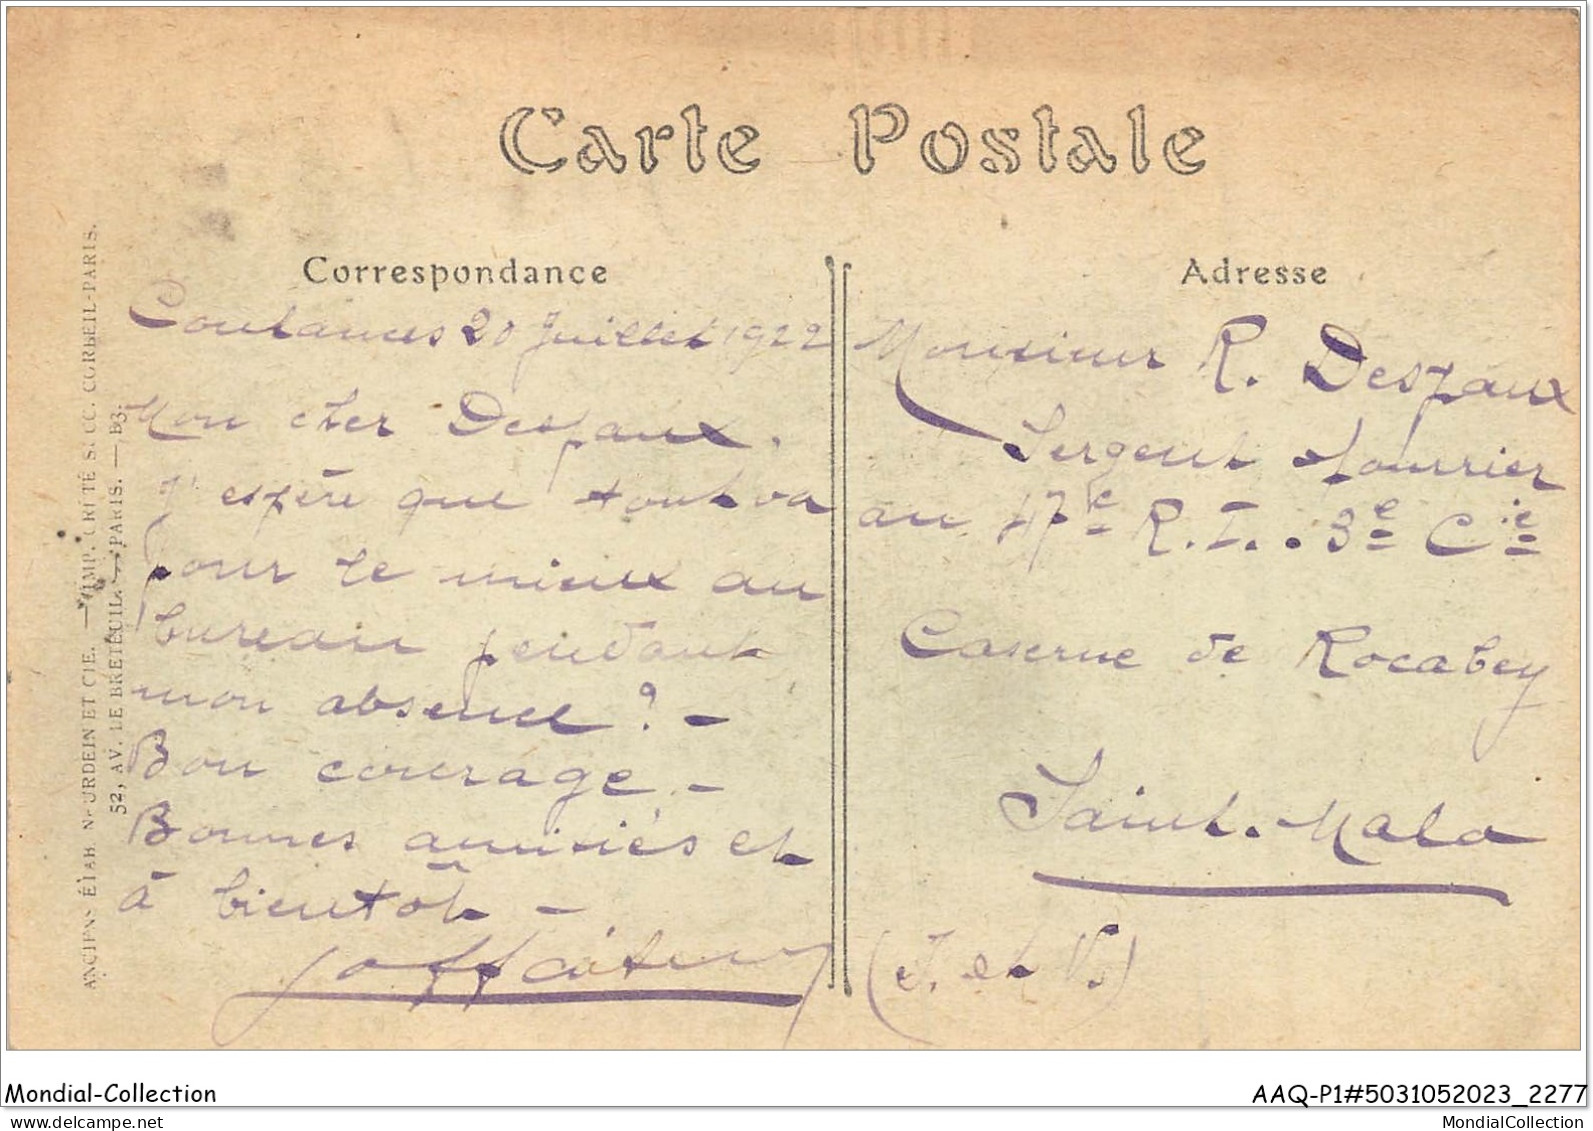 Carte Postale
Correspondance
Coutances 20 Juillet 1922
Mon cher Despaux.
J'espère que tout va
pour le mieux au
bureau pendant
mon absence ? -
Bon courage. -
Bonnes amitiés et
à bientôt -
Adresse
Monsieur R. Despaux
Sergent fourrier
au 47e R.I.. 3e Cie
Caserne de Rocabey
Saint-Malo
(I. et V.)
ANCIENS ÉTAB. NEURDEIN ET CIE. — IMP. CRÉTÉ SUCC. CORBEIL-PARIS.
52, AV. DE BRETEUIL. — PARIS. — B3.
Mondial-Collection
AAQ-P1#5031052023_2277
MondialCollection